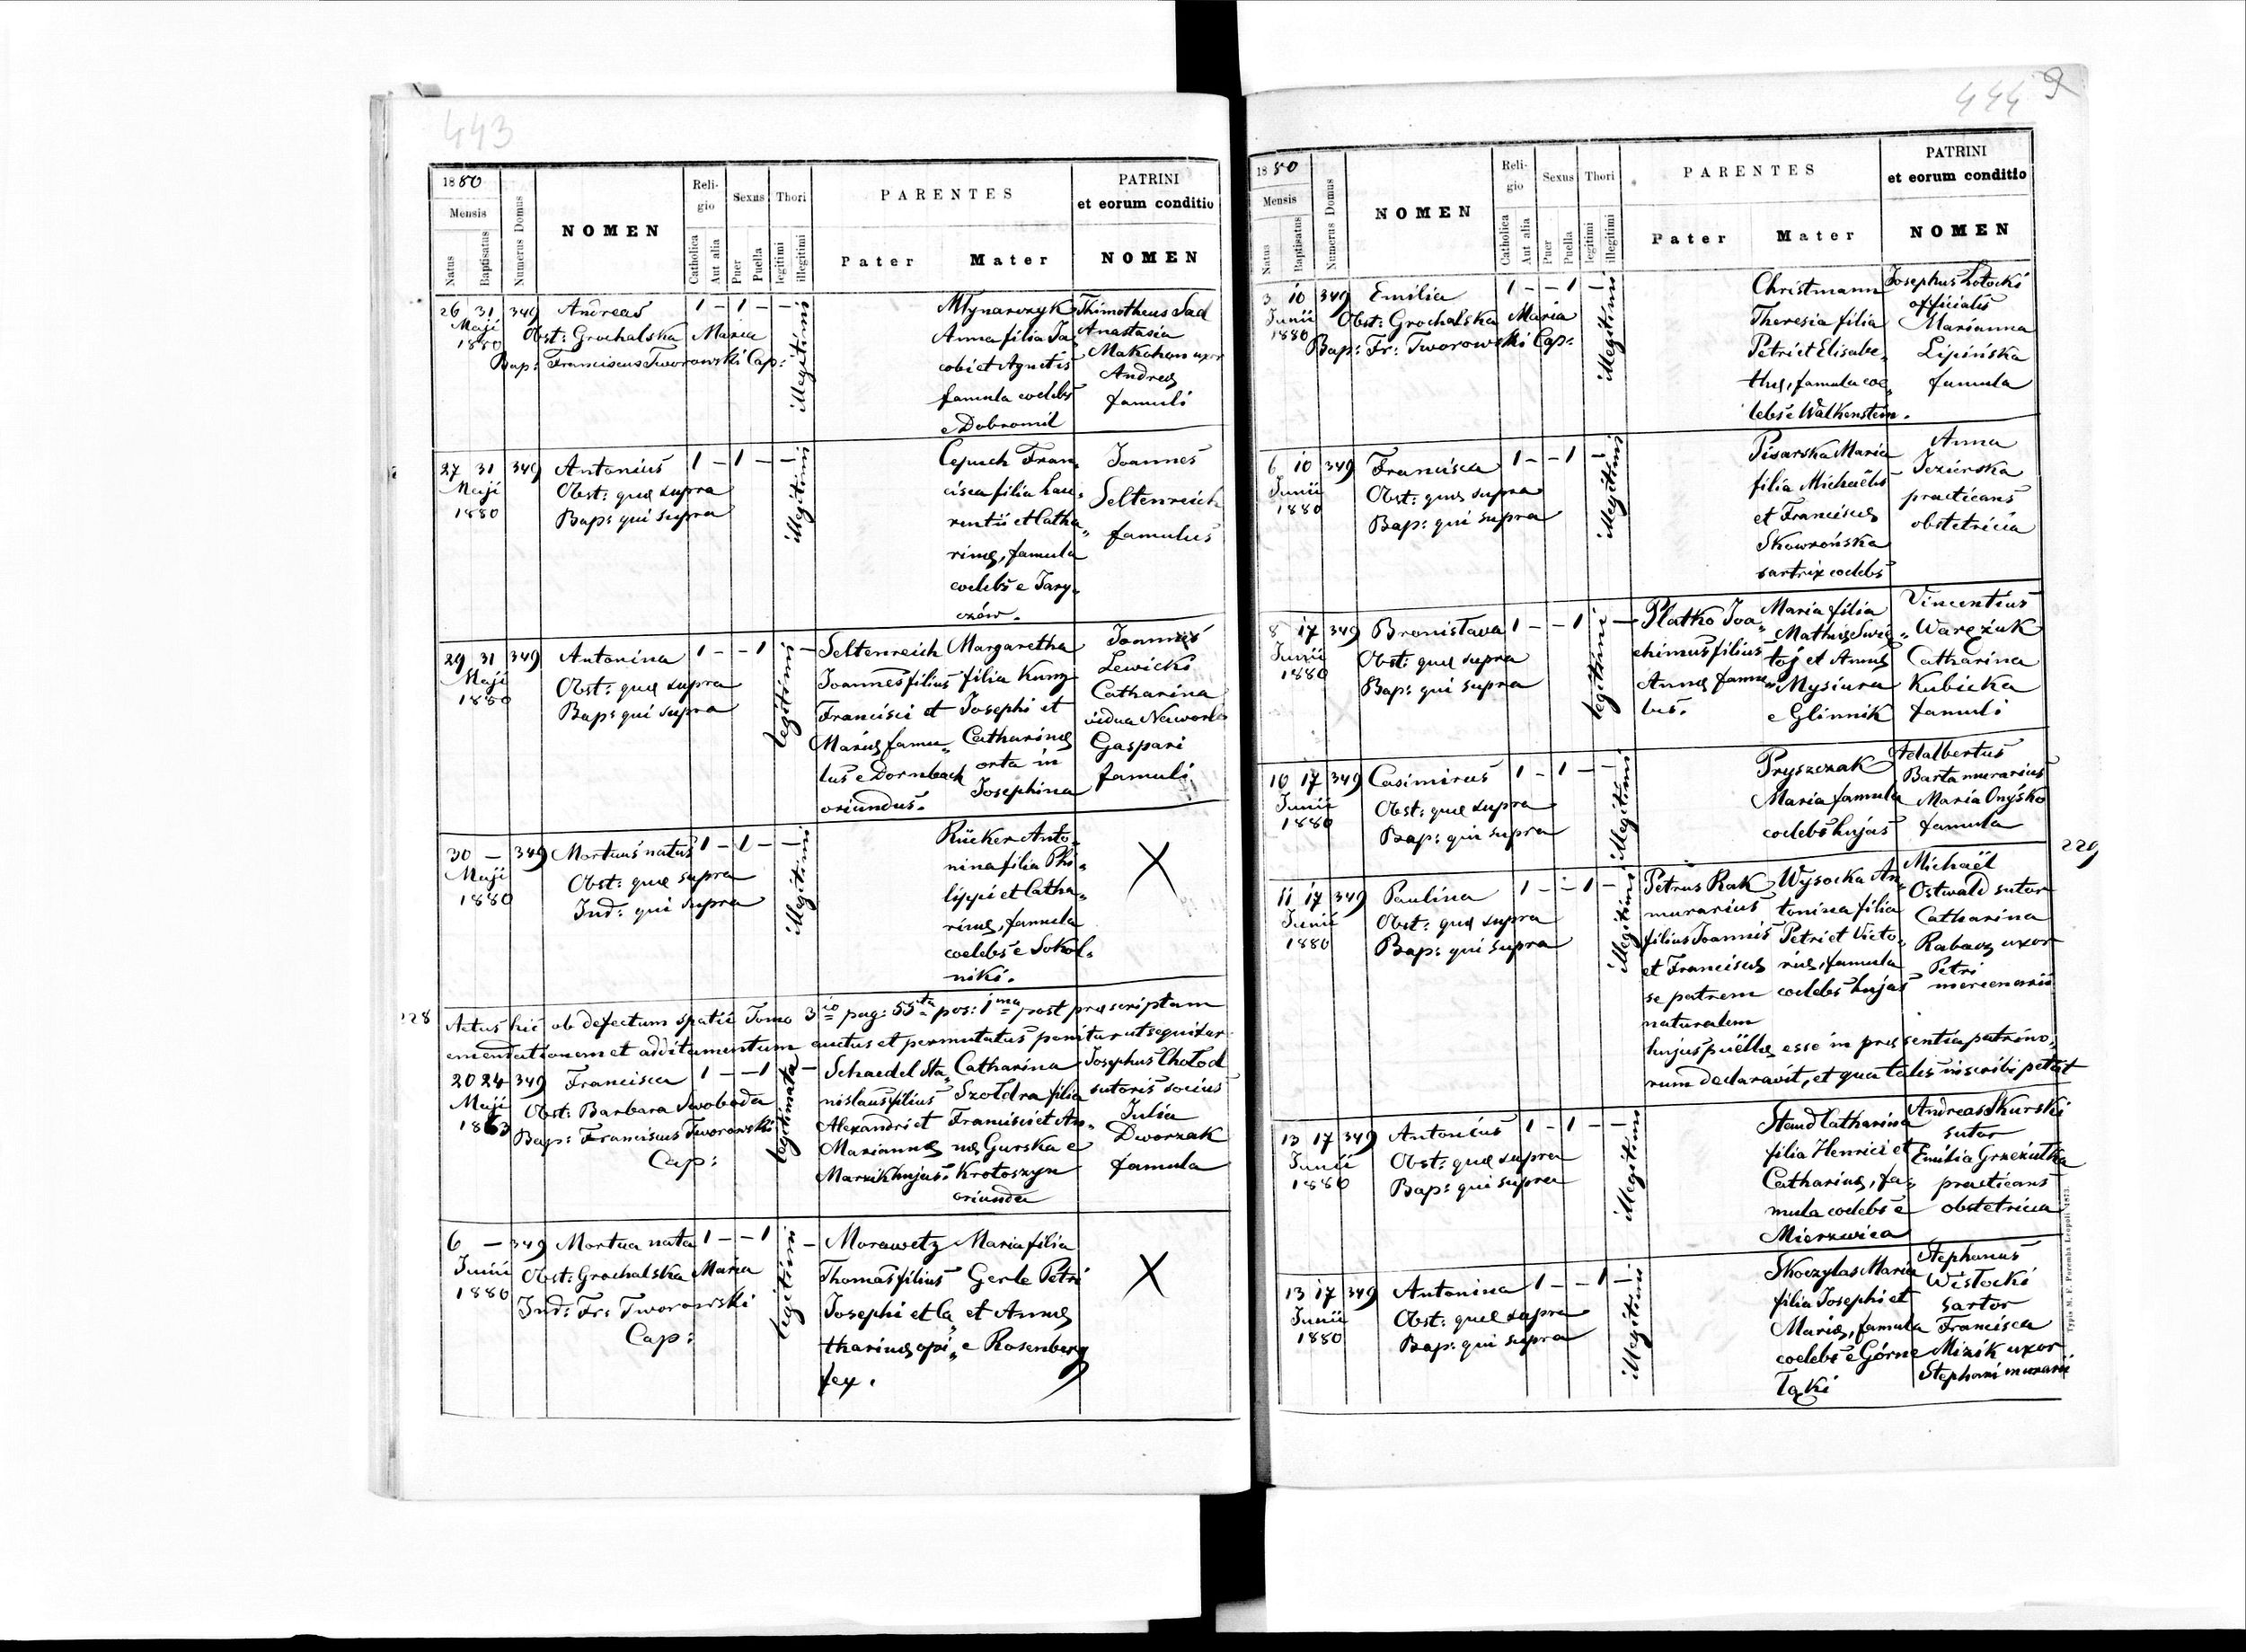 443
1880
Mensis
Natus
Baptisatus
Numerus Domus
NOMEN
Religio
Catholica
Aut alia
Sexus
Puer
Puella
Thori
legitimi
illegitimi
PARENTES
Pater
Mater
PATRINI
et eorum conditio
NOMEN
26 31 349 Andreas 1 - 1 - -
Maji
1880
Obst: Grochalska Maria
Bap: Franciscus Tworowski Cap:
illegitimi
Młynarczyk
Anna filia Ja„
cobi et Agnetis
famula coelebs
e Dobromil
Thimotheus Sad
Anastasia
Makohon uxor
Andreę
famuli
27 31 349 Antonius 1 - 1 - -
Maji
1880
Obst: quę supra
Bap: qui supra
illegitimi
Cepuch Fran„
cisca filia Lau„
rentii et Catha„
rinę, famula
coelebs e Jary„
czów.
Joannes
Seltenreich
famulus
29 31 349 Antonina 1 - - 1 -
Maji
1880
Obst: quę supra
Bap: qui supra
legitimi
Seltenreich
Joannes filius
Francisci et
Marię famu„
lus e Dornbach
oriundus.
Margaretha
filia Kunz
Josephi et
Catharinę
orta in
Josephina
Joannes
Lewicki
Catharina
vidua
Gaspari
famuli
30 - 349 Mortuus natus 1 - 1 - -
Maji
1880
Obst: quę supra
Ind: qui supra
illegitimi
Rücker Anto„
nina filia Phi„
lippi et Catha„
rinę, famula
coelebs e Sokol„
niki.
X
228
Actus hic ob defectum spatii Tomo 3io pag: 55ta pos: 1ma post pręscriptam
emendationem et additamentum auctus et permutatus ponitur ut sequitur
20 24 349 Francisca 1 - - 1 -
Maji
1863
Obst: Barbara Swoboda
Bap: Franciscus Tworowski
Cap:
legitimata
Schaedel Sta„
nislaus filius
Alexandri et
Mariannę
Marzik hujas.
Catharina
Szoldra filia
Francisci et An„
nę Gurska e
Krotoszyn
oriunda
Josephus Chołod
sutoris socius
Julia
Dworzak
famula
6 - 349 Mortua nata 1 - - 1 -
Junii
1880
Obst: Grochalska Maria
Ind: Fr: Tworowski
Cap:
legitimi
Morawetz
Thomas filius
Josephi et Ca„
tharinę opi„
fex.
Maria filia
Gerle Petri
et Annę
e Rosenberg
X
444
9
1880
Mensis
Natus
Baptisatus
Numerus Domus
NOMEN
Religio
Catholica
Aut alia
Sexus
Puer
Puella
Thori
legitimi
illegitimi
PARENTES
Pater
Mater
PATRINI
et eorum conditio
NOMEN
3 10 349 Emilia 1 - - 1 -
Junii
1880
Obst: Grochalska Maria
Bap: Fr: Tworowski Cap:
illegitimi
Christmann
Theresia filia
Petri et Elisabe„
thę, famula coe„
lebs e Walkenstein.
Josephus Łotocki
officialis
Marianna
Lipińska
famula
6 10 349 Francisca 1 - - 1 -
Junii
1880
Obst: quę supra
Bap: qui supra
illegitimi
Pisarska Maria
filia Michaëlis
et Franciscę
Skowrońska
sartrix coelebs
Anna
Jezierska
practicans
obstetricia
8 17 349 Bronisława 1 - - 1 -
Junii
1880
Obst: quę supra
Bap: qui supra
legitimi
Płatko Joa„
chimus filius
Annę famu„
lus.
Maria filia
Mathię Swię„
toj et Annę
Mysiura
e Glinnik
Vincentius
Waręzuk
Catharina
Kubicka
famuli
10 17 349 Casimirus 1 - 1 - -
Junii
1880
Obst: quę supra
Bap: qui supra
illegitimi
Pryszczak
Maria famula
coelebs hujas
Adalbertus
Barta murarius
Maria Onyśko
famula
229
11 17 349 Paulina 1 - - 1 -
Junii
1880
Obst: quę supra
Bap: qui supra
illegitimi
Petrus Rak
murarius
filius Joannis
et Franciscę
se patrem
naturalem
Wysocka An„
tonina filia
Petri et Victo„
rię, famula
coelebs hujas
Michaël
Ostwald sutor
Catharina
Rabacz uxor
Petri
mercenarii
hujus puëllę esse in pręsentia patrino„
rum declaravit, et qua talis inscribi petiit
13 17 349 Antonius 1 - 1 - -
Junii
1880
Obst: quę supra
Bap: qui supra
illegitimi
Staud Catharina
filia Henrici et
Catharinę, fa„
mula coelebs e
Mierzwica
Andreas Skurski
sutor
Emilia Grzeziutka
practicans
obstetricia
13 17 349 Antonina 1 - - 1 -
Junii
1880
Obst: quę supra
Bap: qui supra
illegitimi
Skoczylas Maria
filia Josephi et
Marię, famula
coelebs e Górne
Łąki
Stephanus
Wisłocki
sartor
Francisca
Mizik uxor
Stephani murarii
Typis M. F. Poremba Leopoli 1873.